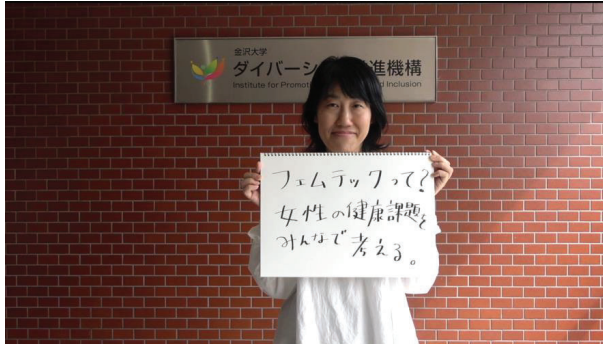 金沢大学
ダイバーシ 進機構
Institute for Promot d Inclusion
フェムテックって?
女性の健康課題を
みんなで考える。